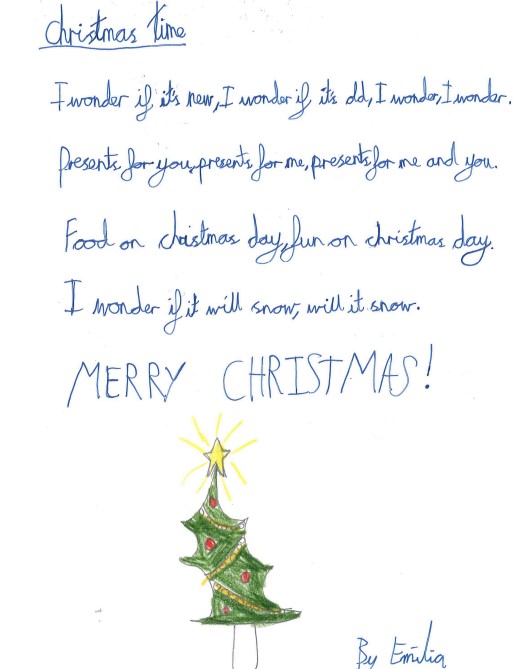 Christmas time
I wonder if it's new, I wonder if it's old, I wonder, I wonder.
Presents for you, presents for me, presents for me and you.
Food on christmas day, fun on christmas day.
I wonder if it will snow, will it snow.
MERRY CHRISTMAS!
By Emilia